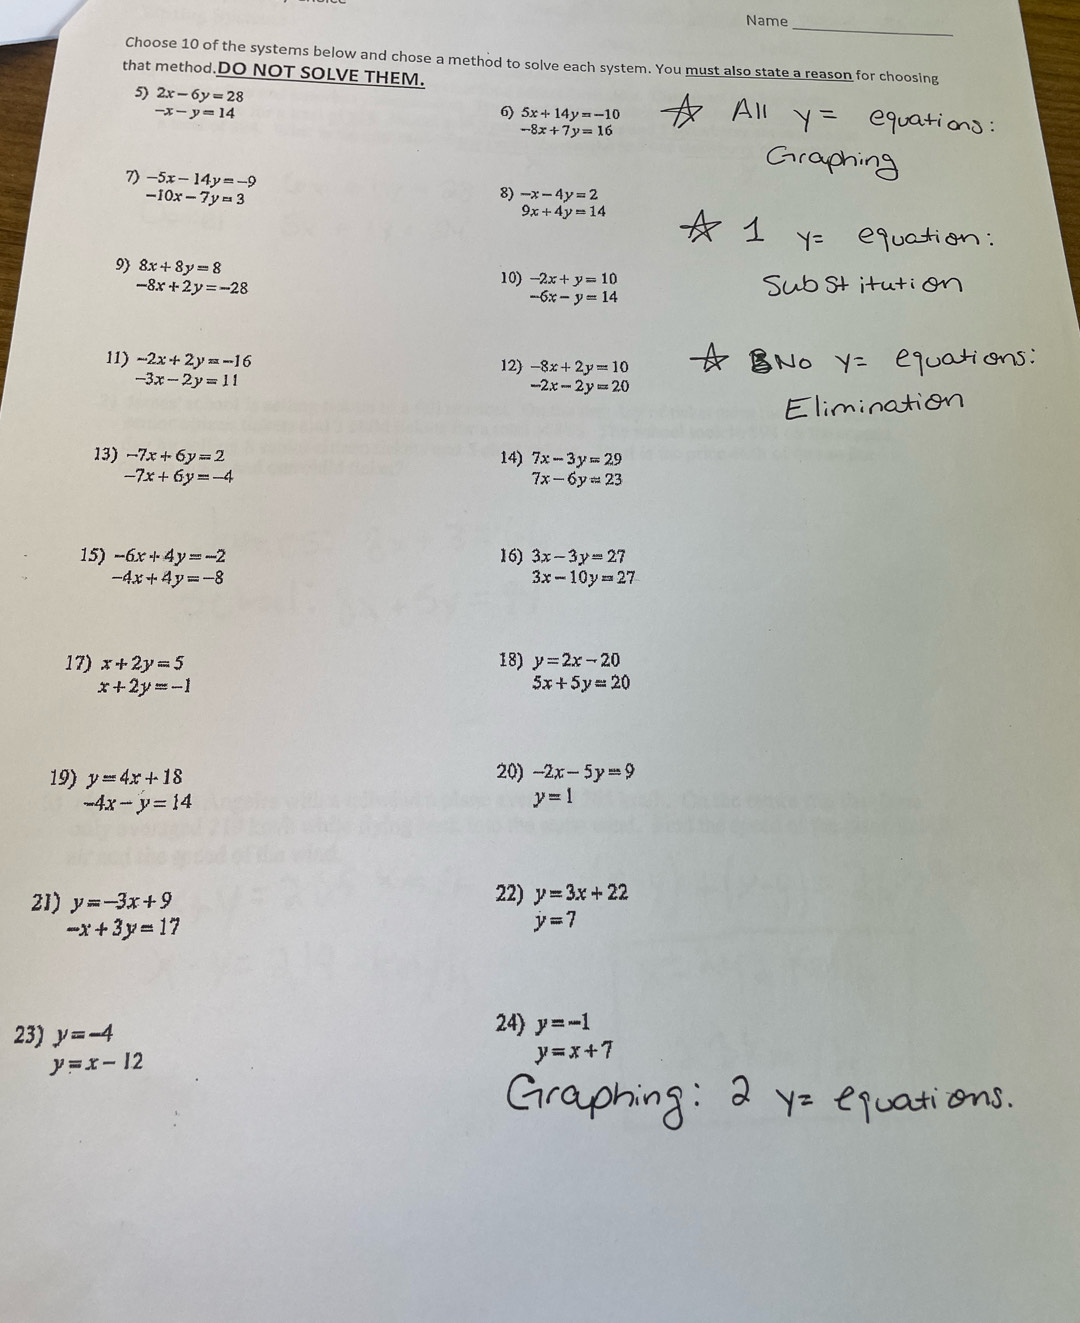 Name
Choose 10 of the systems below and chose a method to solve each system. You must also state a reason for choosing
that method. DO NOT SOLVE THEM.
5) 2x − 6y = 28
−x − y = 14
6) 5x + 14y = −10
−8x + 7y = 16
☆ All y = equations:
Graphing
7) −5x − 14y = −9
−10x − 7y = 3
8) −x − 4y = 2
9x + 4y = 14
☆ 1 y = equation:
Substitution
9) 8x + 8y = 8
−8x + 2y = −28
10) −2x + y = 10
−6x − y = 14
11) −2x + 2y = −16
−3x − 2y = 11
12) −8x + 2y = 10
−2x − 2y = 20
☆ No y = equations:
Elimination
13) −7x + 6y = 2
−7x + 6y = −4
14) 7x − 3y = 29
7x − 6y = 23
15) −6x + 4y = −2
−4x + 4y = −8
16) 3x − 3y = 27
3x − 10y = 27
17) x + 2y = 5
x + 2y = −1
18) y = 2x − 20
5x + 5y = 20
19) y = 4x + 18
−4x − y = 14
20) −2x − 5y = 9
y = 1
21) y = −3x + 9
−x + 3y = 17
22) y = 3x + 22
y = 7
23) y = −4
y = x − 12
24) y = −1
y = x + 7
Graphing: 2 y = equations.